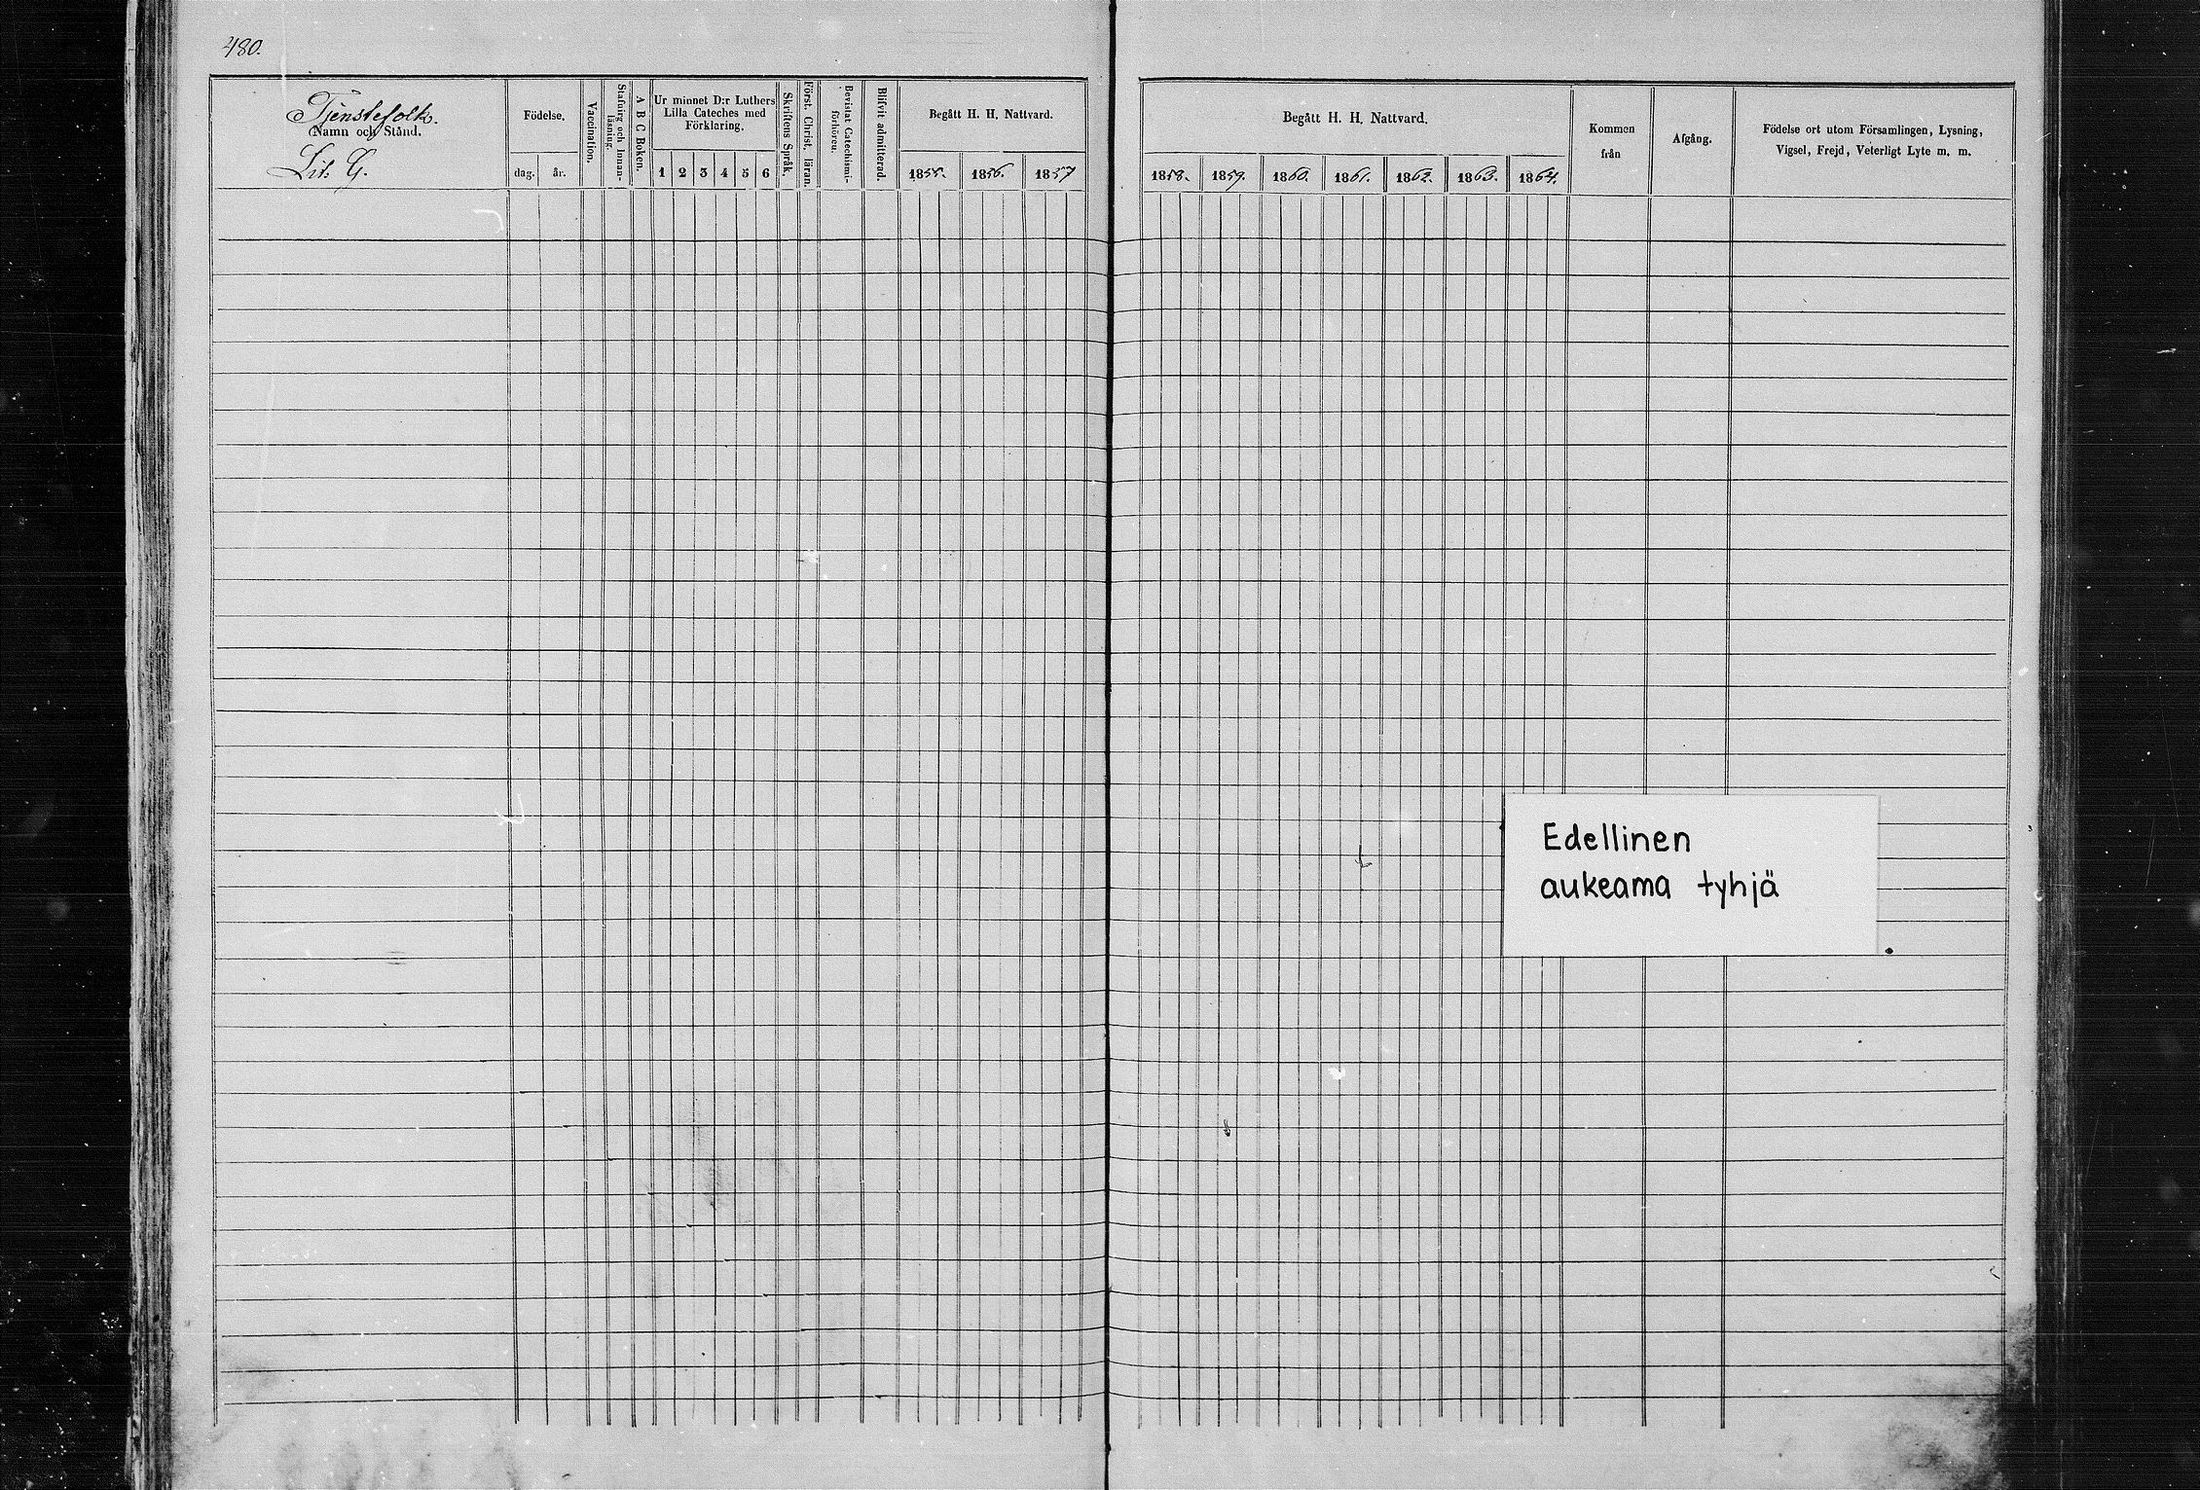 480.
Tjenstefolk.
Namn och Stånd.
Lit. G.
Födelse.
dag.
år.
Vaccination.
Stafning och Innan-
läsning.
A B C Boken.
Ur minnet D:r Luthers
Lilla Cateches med
Förklaring.
1 2 3 4 5 6
Skriftens Språk.
Först. Christ. läran.
Bevistat Catechismi-
förhören.
Blifvit admitterad.
Begått H. H. Nattvard.
1855. 1856. 1857
Begått H. H. Nattvard.
1858. 1859. 1860. 1861. 1862. 1863. 1864.
Kommen
från
Afgång.
Födelse ort utom Församlingen, Lysning,
Vigsel, Frejd, Veterligt Lyte m. m.
Edellinen
aukeama tyhjä